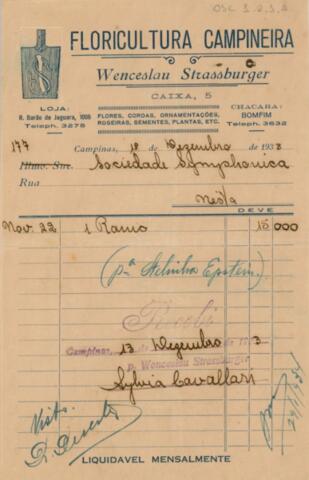 OSC 1.2.3.2
FLORICULTURA CAMPINEIRA
Wenceslau Strassburger
CAIXA, 5
LOJA:
R. Barão de Jaguara, 1006
Teleph. 3275
FLORES, COROAS, ORNAMENTAÇÕES,
ROSEIRAS, SEMENTES, PLANTAS, ETC.
CHACARA:
BOMFIM
Teleph. 3632
177
Campinas, 1º Dezembro 1933
Illmo. Snr. Sociedade Symphonica
Rua
Nesta
DEVE
Nov. 22 1 Ramo 15 000
(pª Helninha Epstein.)
Recebi
Campinas, 13 Dezembro 3
p. Wenceslau Strassburger
Sylvia Cavallari
Visto
LIQUIDAVEL MENSALMENTE